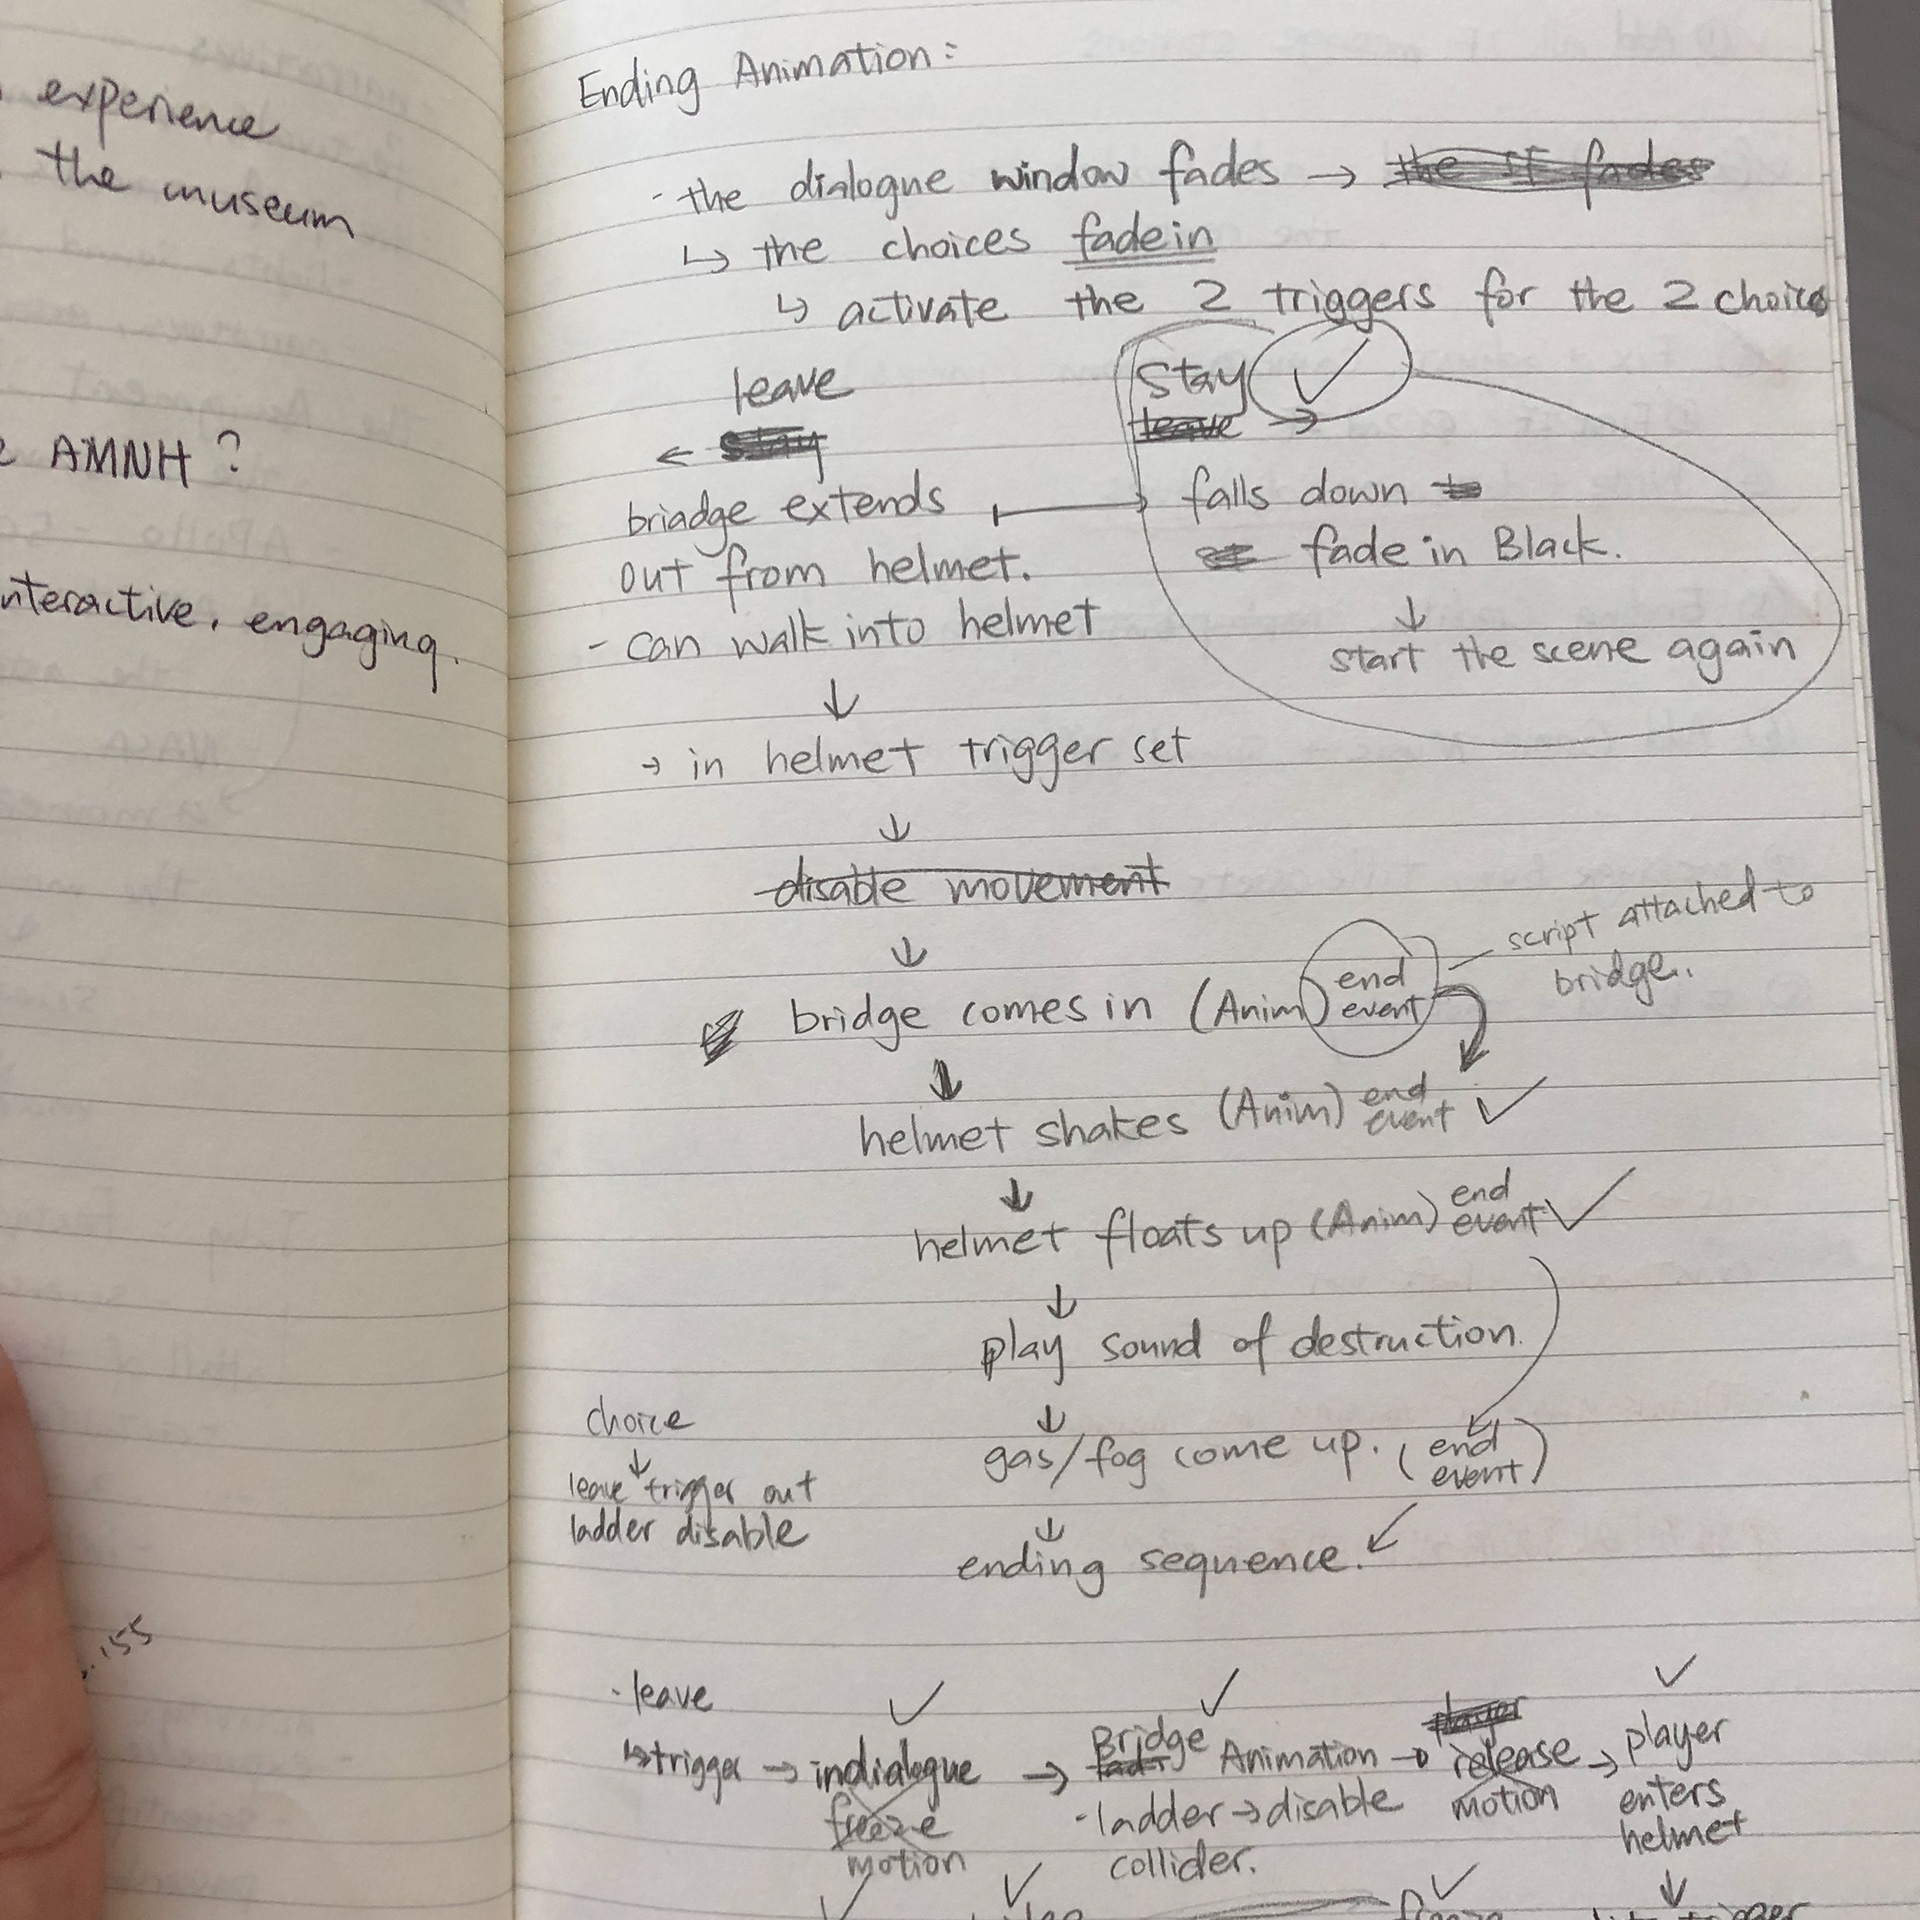 experience
the museum
AMNH ?
interactive, engaging.
.155
Ending Animation :
- the dialogue window fades → the IF fades
↳ the choices fade in
↳ activate the 2 triggers for the 2 choice
leave
← stay
briadge extends
out from helmet.
- can walk into helmet
↓
Stay ✓
leave →
falls down to
fade in Black.
↓
start the scene again
→ in helmet trigger set
↓
disable movement
↓
bridge comes in (Anim) end event
script attached to
bridge.
↓
helmet shakes (Anim) end event ✓
↓
helmet floats up (Anim) end event ✓
↓
play sound of destruction.
↓
gas/fog come up. (end event)
↓
ending sequence.
choice
↓
leave trigger out
ladder disable
- leave
↳ trigger → indialogue → Bridge Animation → release → player
freeze
motion
- ladder → disable
collider.
player
motion
enters
helmet
↓
freeze